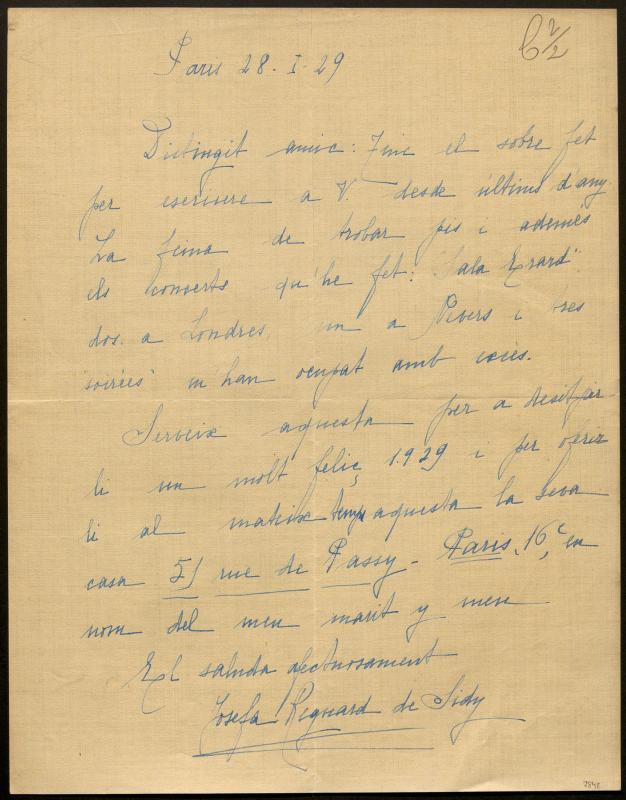 C 2/2
Paris 28. I. 29
Distingit amic: Tinc el sobre fet
per escriure a V. desde últims d'any.
La feina de trobar pis i además
els concerts qu'he fet: "Sala Erard"
dos a Londres, un a Nevers i tres
"soirées" m'han ocupat amb excés.
Serveix aquesta per a desitjar-
li un molt feliç 1.929 i per oferir
li al mateix temps aquesta la seva
casa 51 rue de Passy - Paris, 16e, en
nom del meu marit y meu
El saluda afectuosament
Josefa Regnard de Sidy
7848